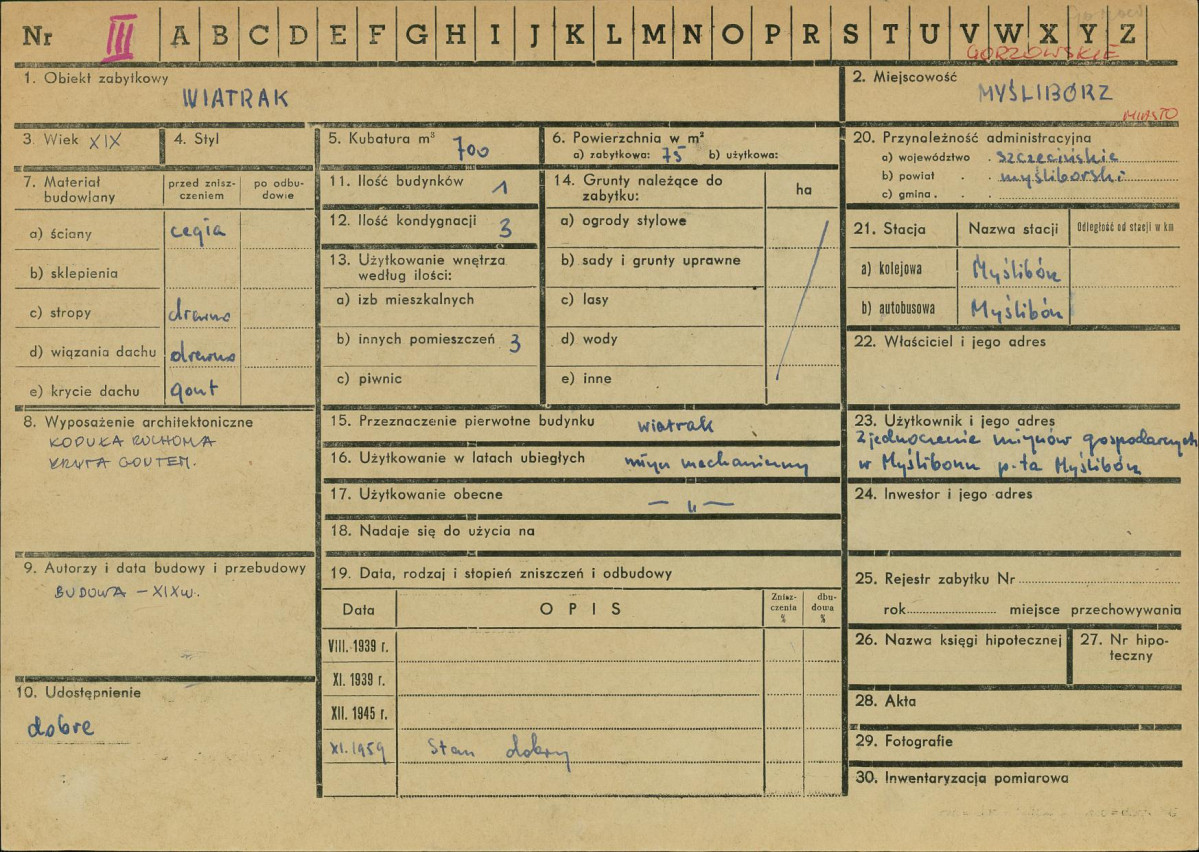 Nr III A B C D E F G H I J K L M N O P R S T U V W X Y Z
GORZOWSKIE
1. Obiekt zabytkowy
WIATRAK
2. Miejscowość
MYŚLIBÓRZ
MIASTO
3. Wiek XIX
4. Styl
5. Kubatura m³ 700
6. Powierzchnia w m²
a) zabytkowa: 75 b) użytkowa:
20. Przynależność administracyjna
a) województwo . szczecińskie
b) powiat . . myśliborski
c) gmina . .
7. Materiał budowlany
przed znisz-
czeniem
po odbu-
dowie
a) ściany cegła
b) sklepienia
c) stropy drewno
d) wiązania dachu drewno
e) krycie dachu gont
11. Ilość budynków 1
12. Ilość kondygnacji 3
13. Użytkowanie wnętrza
według ilości:
a) izb mieszkalnych
b) innych pomieszczeń 3
c) piwnic
14. Grunty należące do
zabytku:
ha
a) ogrody stylowe
b) sady i grunty uprawne
c) lasy
d) wody
e) inne
21. Stacja Nazwa stacji Odległość od stacji w km
a) kolejowa Myślibórz
b) autobusowa Myślibórz
22. Właściciel i jego adres
8. Wyposażenie architektoniczne
KOPUŁA RUCHOMA
KRYTA GONTEM.
15. Przeznaczenie pierwotne budynku wiatrak
16. Użytkowanie w latach ubiegłych młyn mechaniczny
17. Użytkowanie obecne — „ —
18. Nadaje się do użycia na
23. Użytkownik i jego adres
Zjednoczenie młynów gospodarczych
w Myśliborzu p-ta Myślibórz
24. Inwestor i jego adres
9. Autorzy i data budowy i przebudowy
BUDOWA – XIXw.
19. Data, rodzaj i stopień zniszczeń i odbudowy
Data OPIS
Znisz-
czenia
%
dbu-
dowa
%
VIII. 1939 r.
XI. 1939 r.
XII. 1945 r.
XI. 1959 Stan dobry
25. Rejestr zabytku Nr
rok miejsce przechowywania
26. Nazwa księgi hipotecznej
27. Nr hipo-
teczny
10. Udostępnienie
dobre
28. Akta
29. Fotografie
30. Inwentaryzacja pomiarowa